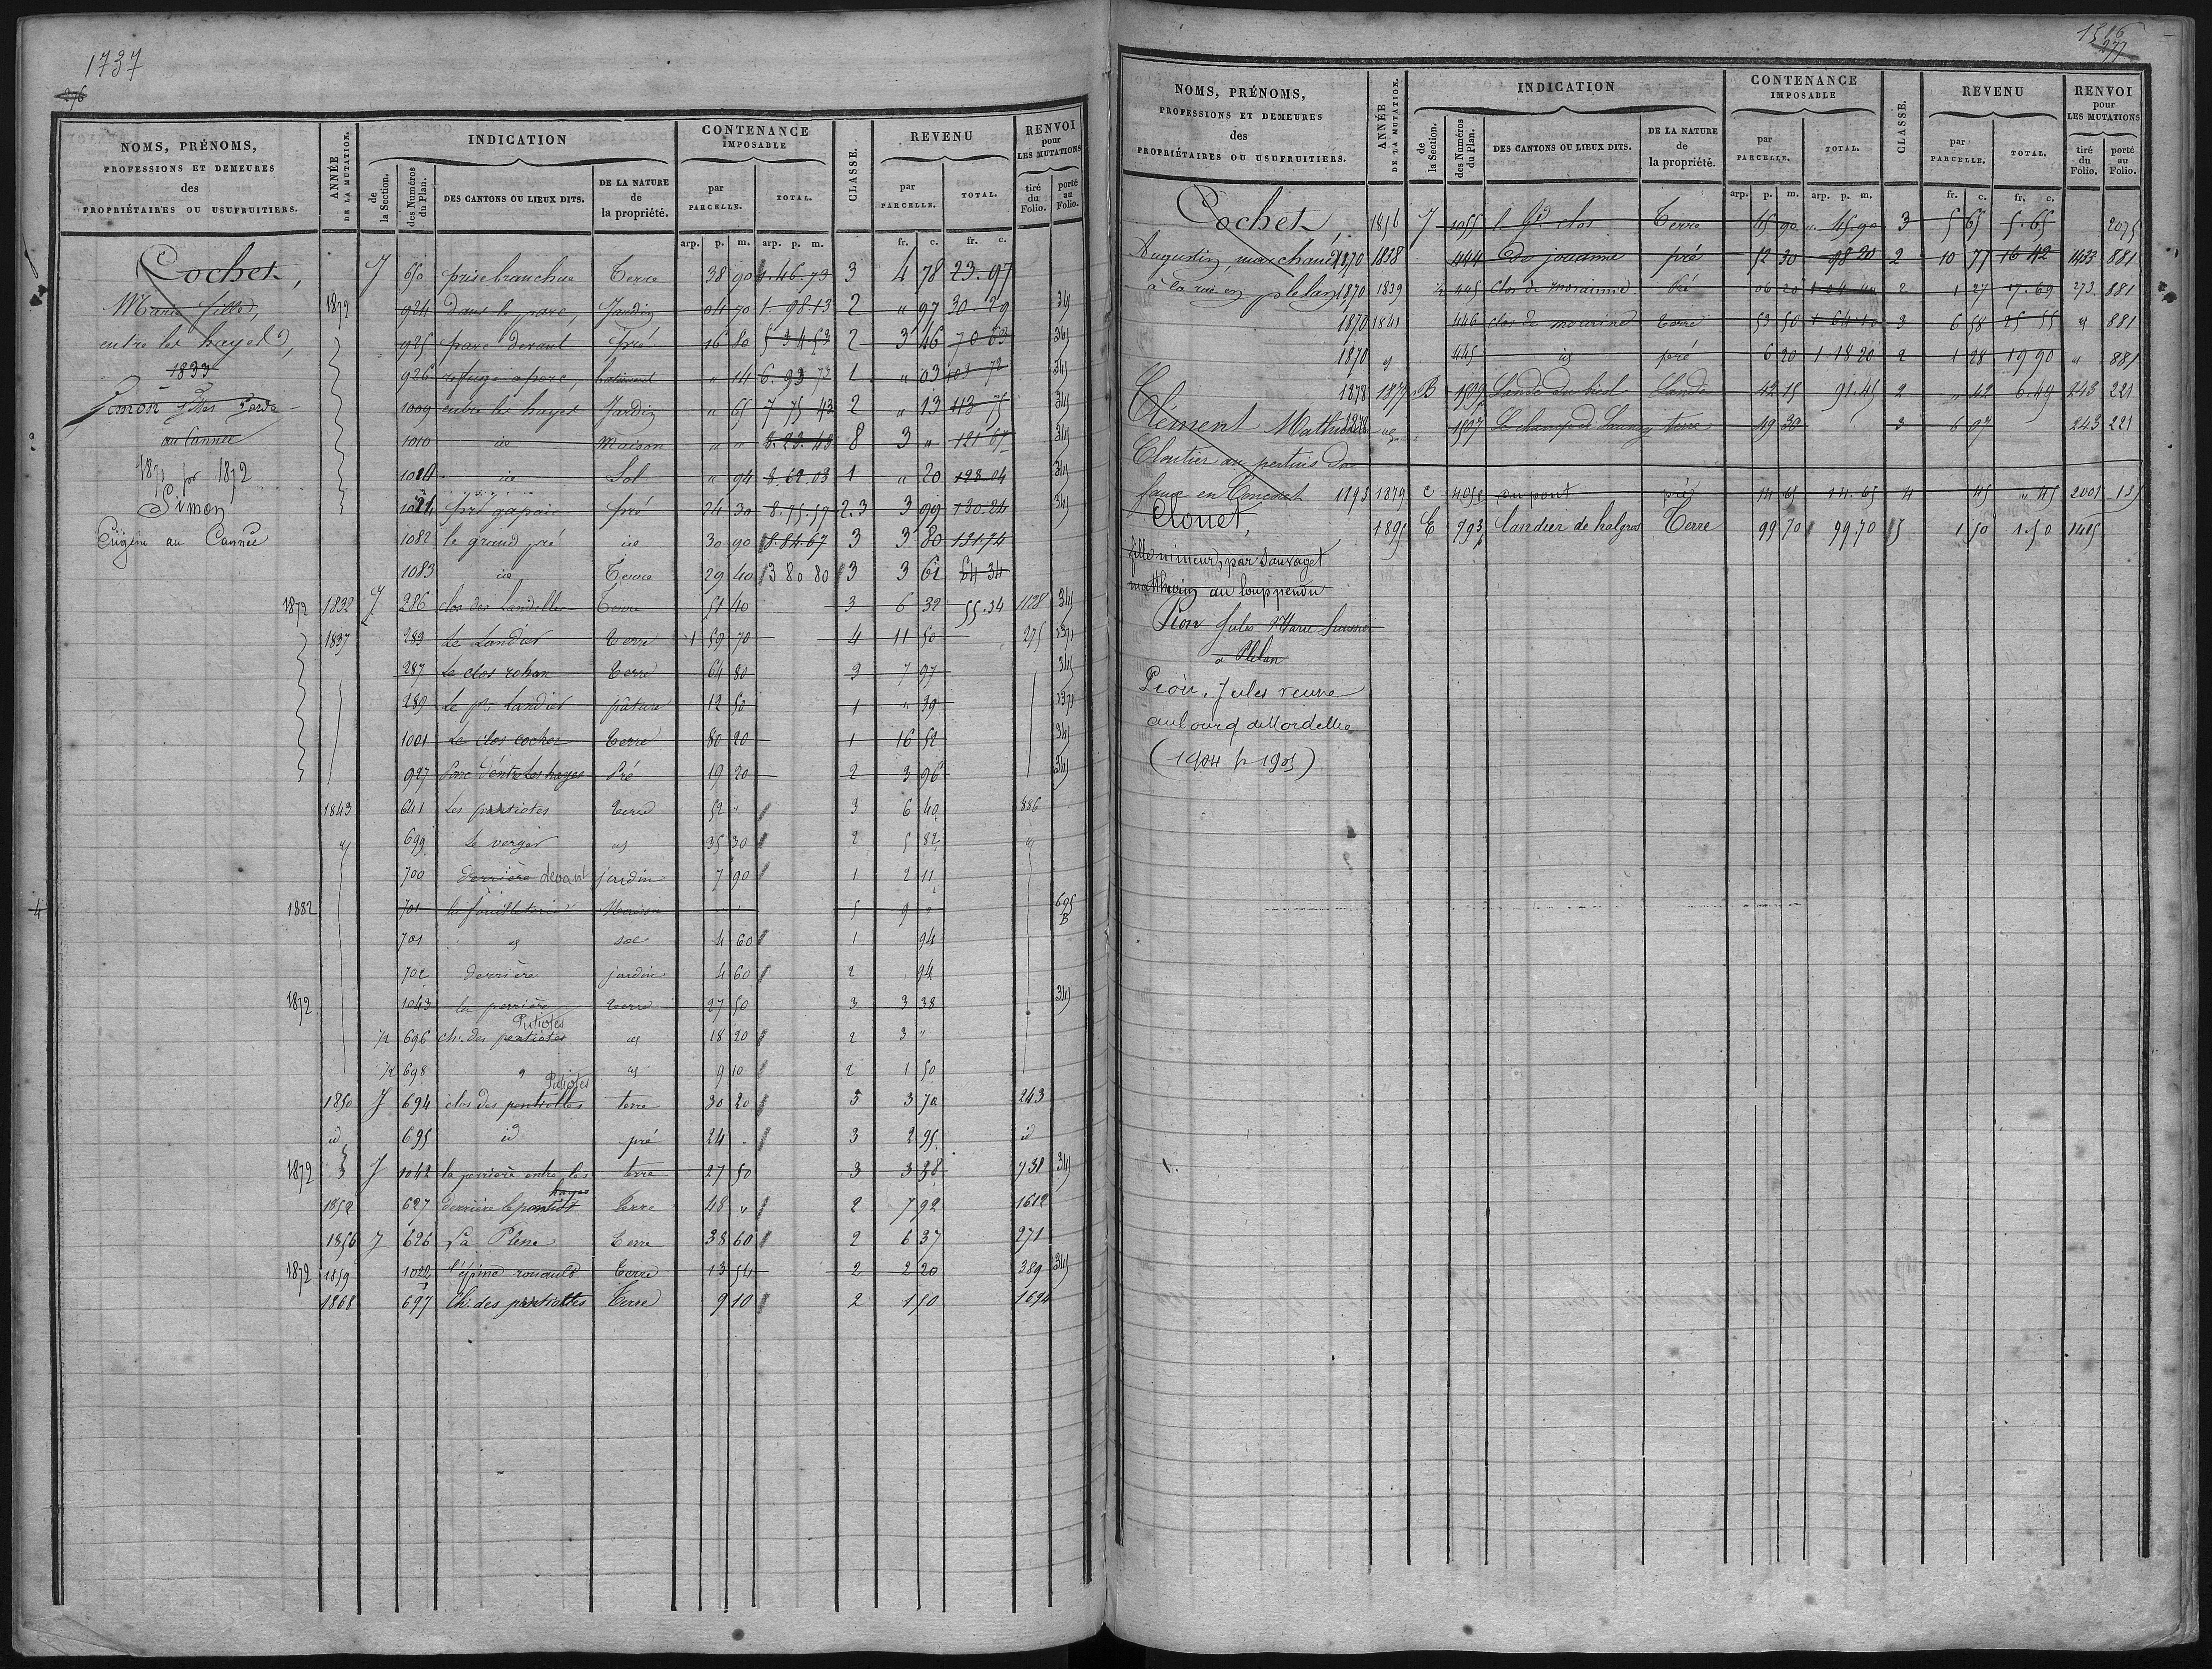 1737
276
NOMS, PRÉNOMS, PROFESSIONS ET DEMEURES des PROPRIÉTAIRES OU USUFRUITIERS.
ANNÉE DE LA MUTATION.
INDICATION
de la Section.
des Numéros du Plan.
DES CANTONS OU LIEUX DITS.
DE LA NATURE de la propriété.
CONTENANCE IMPOSABLE
par PARCELLE.
TOTAL.
CLASSE.
REVENU
par PARCELLE.
TOTAL.
RENVOI pour LES MUTATIONS
tiré du Folio.
porté au Folio.
arp. p. m. arp. p. m. fr. c. fr. c.
Cochet,
Marie fille,
entre les hayes,
1833
au Cannée
1871 pr 1872
Simon
Eugène au Cannée
J 650 prise branchue Terre 38 90 1.46.73 3 4 78 23.97
1872 924 dans le parc, Jardin 04 70 1.98.13 2 " 97 30.29 341
925 parc devant pré 16 80 5 34.53 2 3 46 70 63 341
926 refuge a porc, batiment " 14 6.93 73 1 " 03 103 72 341
1009 entre les hayes Jardin " 65 7 75 43 2 " 13 113 75 341
1010 id Maison " " 8.23.43 8 3 " 121 67 341
1010 id Sol " 94 8.62.03 1 " 20 128.04 341
pré gapais pré 24 30 8.75.57 2.3 3 99 130.24 341
1082 le grand pré id 30 90 8.84.67 3 3 80 131.74
1083 id Terre 29 40 3 80 80 3 3 61 54 34
1872 1832 J 286 clos des Landelles Terre 51 40 3 6 32 55.34 1128 341
1837 283 Le Landier Terre 1 59 70 4 11 50 275 1371
287 Le clos rohan Terre 64 80 3 7 97 341
289 Le pt Landier pâture 12 50 1 " 39 1371
1001 Le clos cochet Terre 80 20 1 16 52 341
927 Parc d'entre les hayes Pré 19 20 2 3 96 341
1843 641 Les pentiotes terre 52 " 3 6 40 886
699 Le verger id 35 30 2 5 82
700 derrière devant jardin 7 90 1 2 11
1882 701 la feuilleterie Maison 5 9 " 695 B
701 id sol 4 60 1 94
702 derrière jardin 4 60 2 94
1872 1043 la perrière terre 27 50 3 3 38 341
Putiotes
1/2 696 ch. des pentiotes id 18 20 2 3 "
1/2 698 " id 9 10 2 1 50
Putiotes
1850 J 694 clos des pentiottes terre 30 20 3 3 70 243
id 695 id pré 24 . 3 2.95 id
1872 J 1042 la perrière entre les hayes terre 27 50 3 3 38 731 341
1852 627 derrière le pontiot Terre 48 " 2 7 92 1612
1856 J 626 La Plene Terre 38 60 2 6 37 271
1872 1859 1022 l'épine rouault Terre 13 54 2 2 20 389 341
1868 697 Ch. des pentiottes Terre 9 10 2 1 50 1694
1516
277
NOMS, PRÉNOMS, PROFESSIONS ET DEMEURES des PROPRIÉTAIRES OU USUFRUITIERS.
ANNÉE DE LA MUTATION.
INDICATION
de la Section.
des Numéros du Plan.
DES CANTONS OU LIEUX DITS.
DE LA NATURE de la propriété.
CONTENANCE IMPOSABLE
par PARCELLE.
TOTAL.
CLASSE.
REVENU
par PARCELLE.
TOTAL.
RENVOI pour LES MUTATIONS
tiré du Folio.
porté au Folio.
arp. p. m. arp. p. m. fr. c. fr. c.
Cochet, 1856 J 1055 le Gd clos Terre 45 90 " 45.90 3 5 65 5.65 2075
Augustin, marchand, 1870 1838 444 Do jouanne pré 52 30 98 20 2 10 77 16 42 1433 881
à la rue en plelan 1870 1839 1/2 445 clos de Pré 06 20 1 04 40 2 1 27 17.69 273. 881
1870 1841 446 clos de terre 53 50 3 6 58 25 55 881
1870 445 id pré 6 20 1 18 20 2 1 28 19 90 " 881
1878 1877 B 1509 Lande Lande 42 15 91.45 2 " 42 6.49 243 221
Clément Mathurin 1878 1597 Le champ de Launay terre 49 30 3 6 07 243 221
Cloutier au pertuis da
faux en Concoret 1893 1879 C 405 au pont pré 14 65 14.65 4 45 " 45 2001 131
Clouet, 1895 E 793 landier de halgros Terre 99 70 99.70 5 1 50 1.50 1415
fille mineure, par Sauvaget
matthurin au loup pendu
Pion Jules Marie
à Plelan
Pion. Jules veuve
au bourg de Mordelles
(1904 pr 1905)